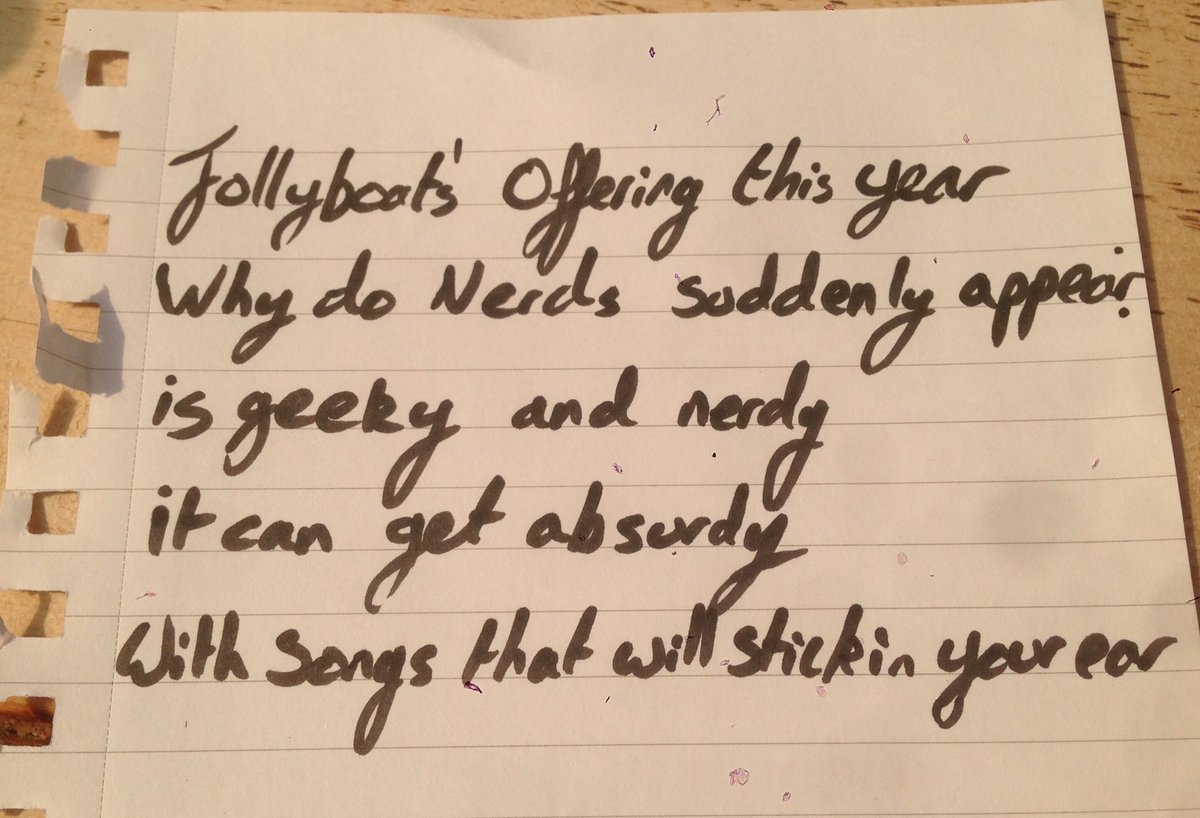 Jollyboat's Offering this year
Why do Nerds suddenly appear?
is geeky and nerdy
it can get absurdy
With Songs that will stick in your ear